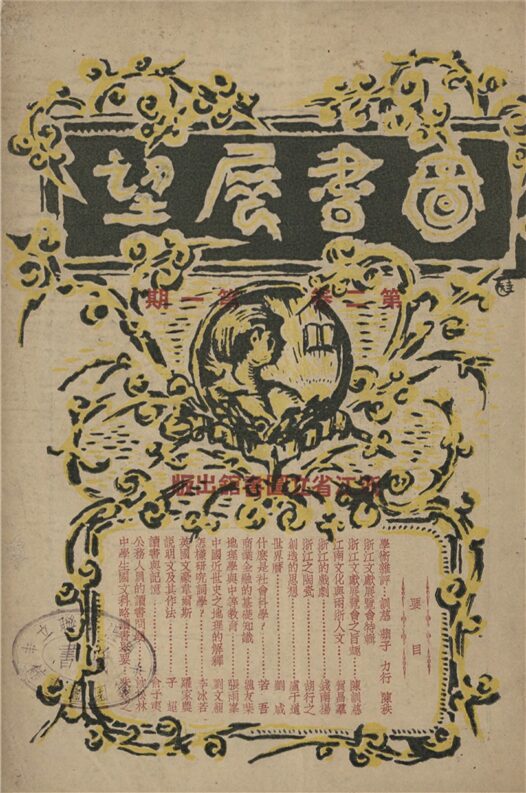 圖書展望
第二卷 第一期
浙江省立圖書館出版
要目
學術雜評……訓慈 蘋子 力行 陳
浙江文獻展覽會特輯
浙江文獻展覽會之旨趣……陳訓慈
江南文化與兩浙人文……賀昌羣
浙江的戲劇……錢南揚
浙江之陶瓷……胡行之
創造的思想……盧于道
世界曆……劉咸
什麼是社會科學？……若吾
商業金融的基礎知識……魏友棐
地理學與中等教育……張
中國近世史之地理的解釋……劉文
怎樣研究詞學？……李冰若
英國文豪韋爾斯……羅家農
說明文及其作法……子韶
讀書與記憶……俞子夷
公務人員的讀書問題……林
中學生國文科略讀書提要